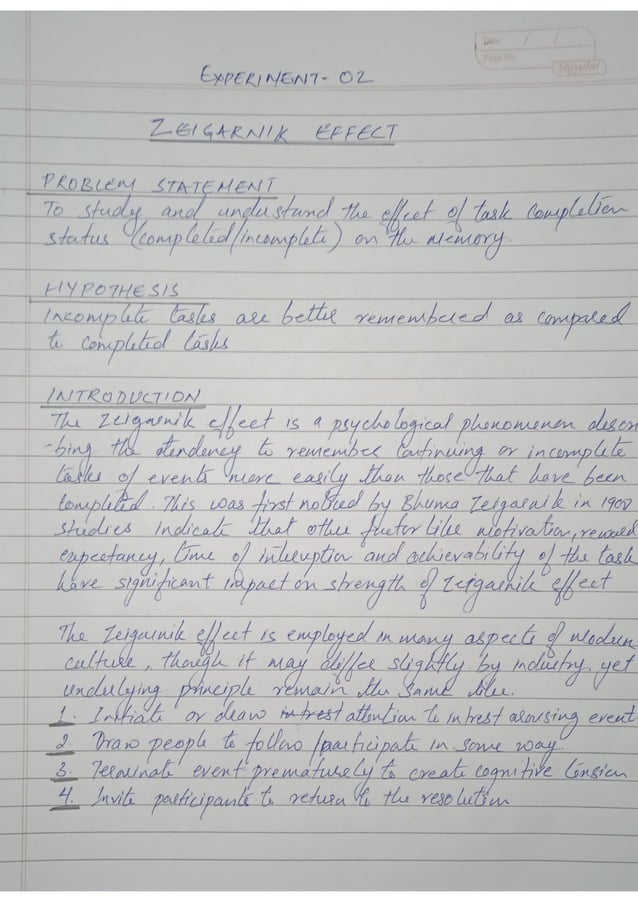 Date / /
Page No.
Shivalal
EXPERIMENT - 02
ZEIGARNIK EFFECT
PROBLEM STATEMENT
To study and understand the effect of task completion
status (completed/incomplete) on the memory.
HYPOTHESIS
Incomplete tasks are better remembered as compared
to completed tasks
INTRODUCTION
The Zeigarnik effect is a psychological phenomenon descri
-bing the tendency to remember continuing or incomplete
tasks of events more easily than those that have been
completed. This was first noticed by Bhuma Zeigarnik in 1900
studies indicate that other factor like motivation, reward
expectancy, time of interuption and achievability of the task
have significant impact on strength of Zeigarnik effect
The Zeigarnik effect is employed in many aspects of modern
culture, though it may differ slightly by industry, yet
underlying principle remain the same like.
1. Initiate or draw intrest attention to intrest arousing event
2. Draw people to follow/participate in some way
3. Terminate event prematurely to create cognitive tension
4. Invite participants to return to the resolution